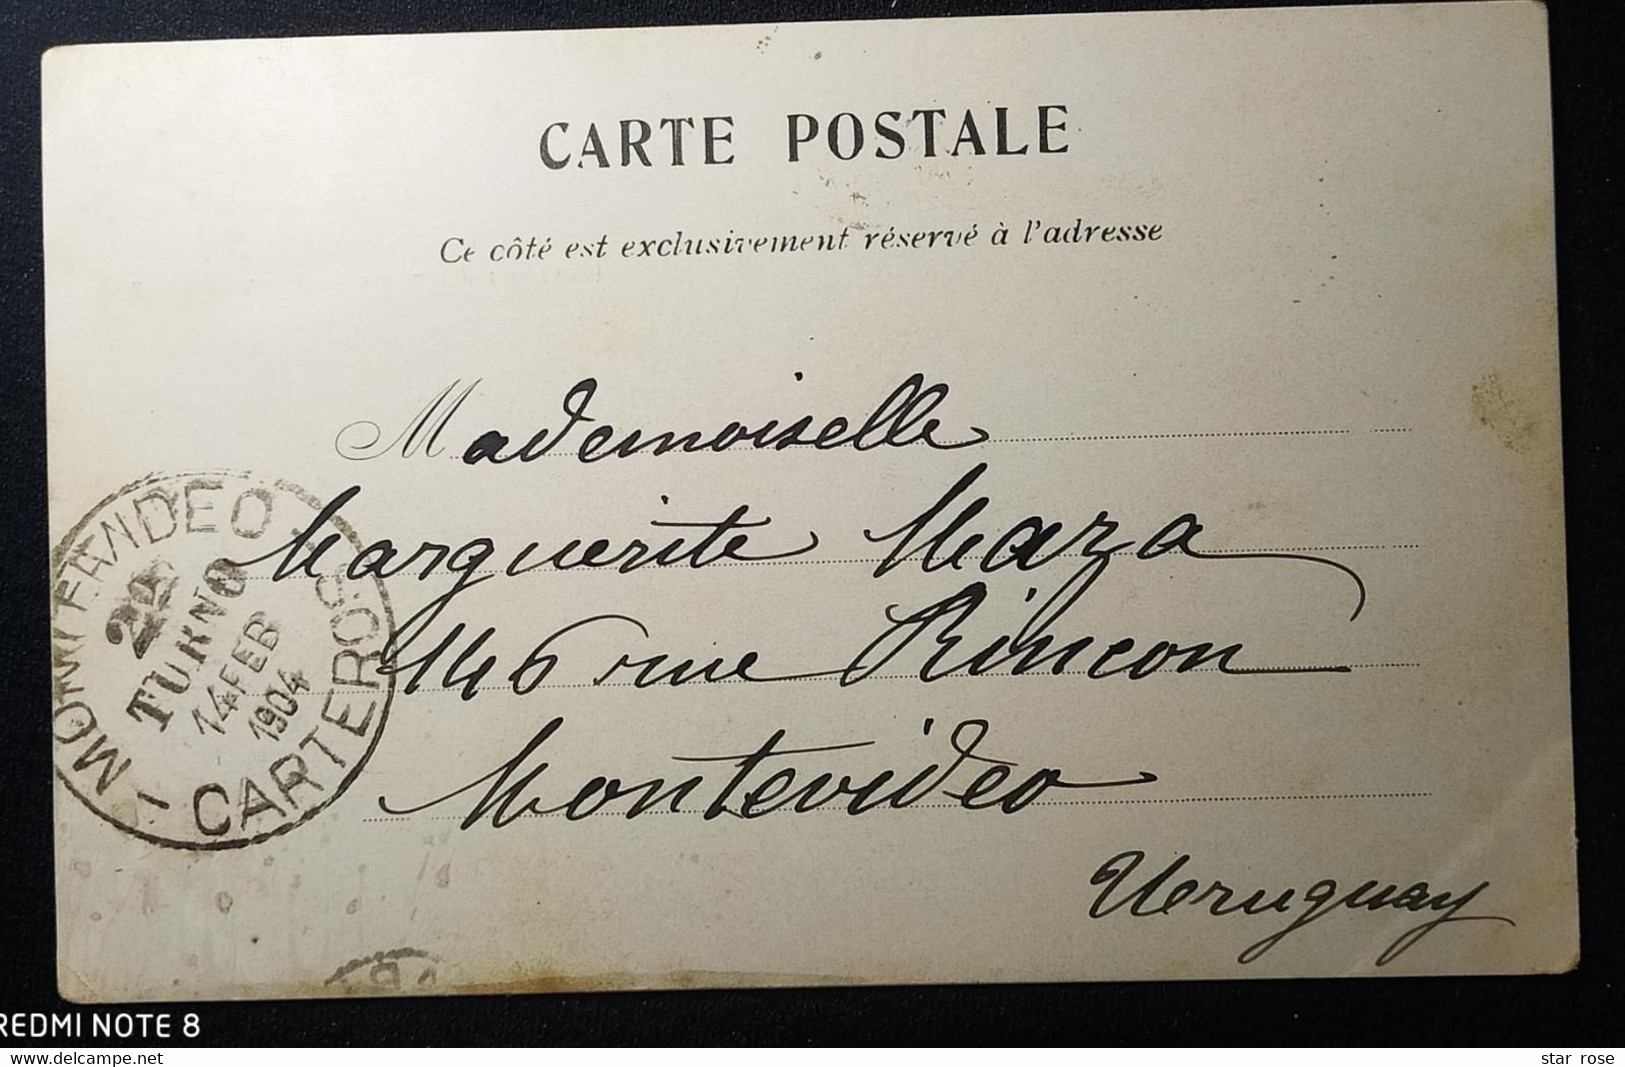 CARTE POSTALE
Ce côté est exclusivement réservé à l'adresse
Mademoiselle
Marguerite Maza
146 rue Rincon
Montevideo
Uruguay
MONTEVIDEO
TURNO
14 FEB
1904
CARTEROS
REDMI NOTE 8
delcampe.net
star rose